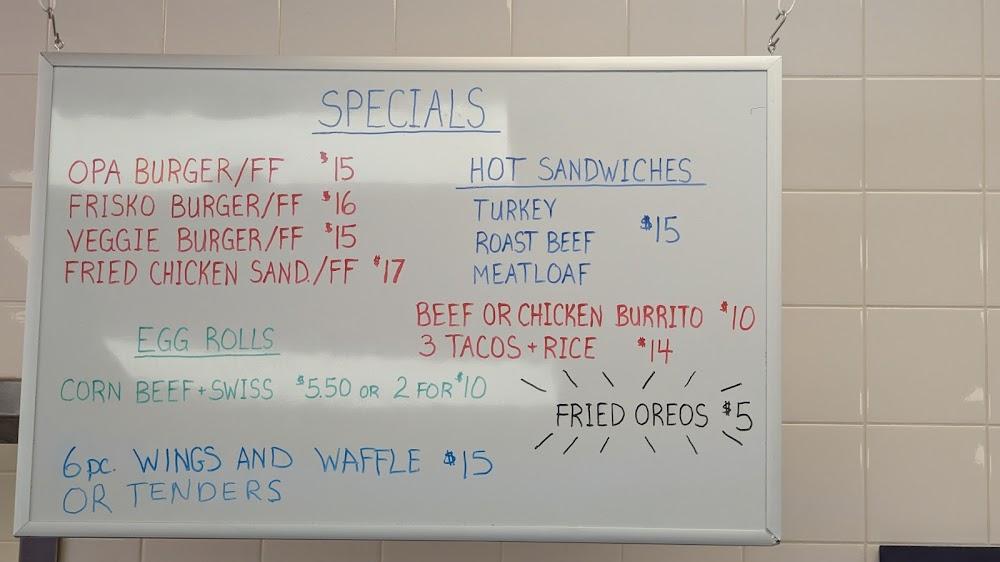 SPECIALS
OPA BURGER/FF $15
FRISKO BURGER/FF $16
VEGGIE BURGER/FF $15
FRIED CHICKEN SAND./FF $17
HOT SANDWICHES
TURKEY
ROAST BEEF $15
MEATLOAF
BEEF OR CHICKEN BURRITO $10
3 TACOS + RICE $14
EGG ROLLS
CORN BEEF + SWISS $5.50 OR 2 FOR $10
FRIED OREOS $5
6 pc. WINGS AND WAFFLE $15
OR TENDERS